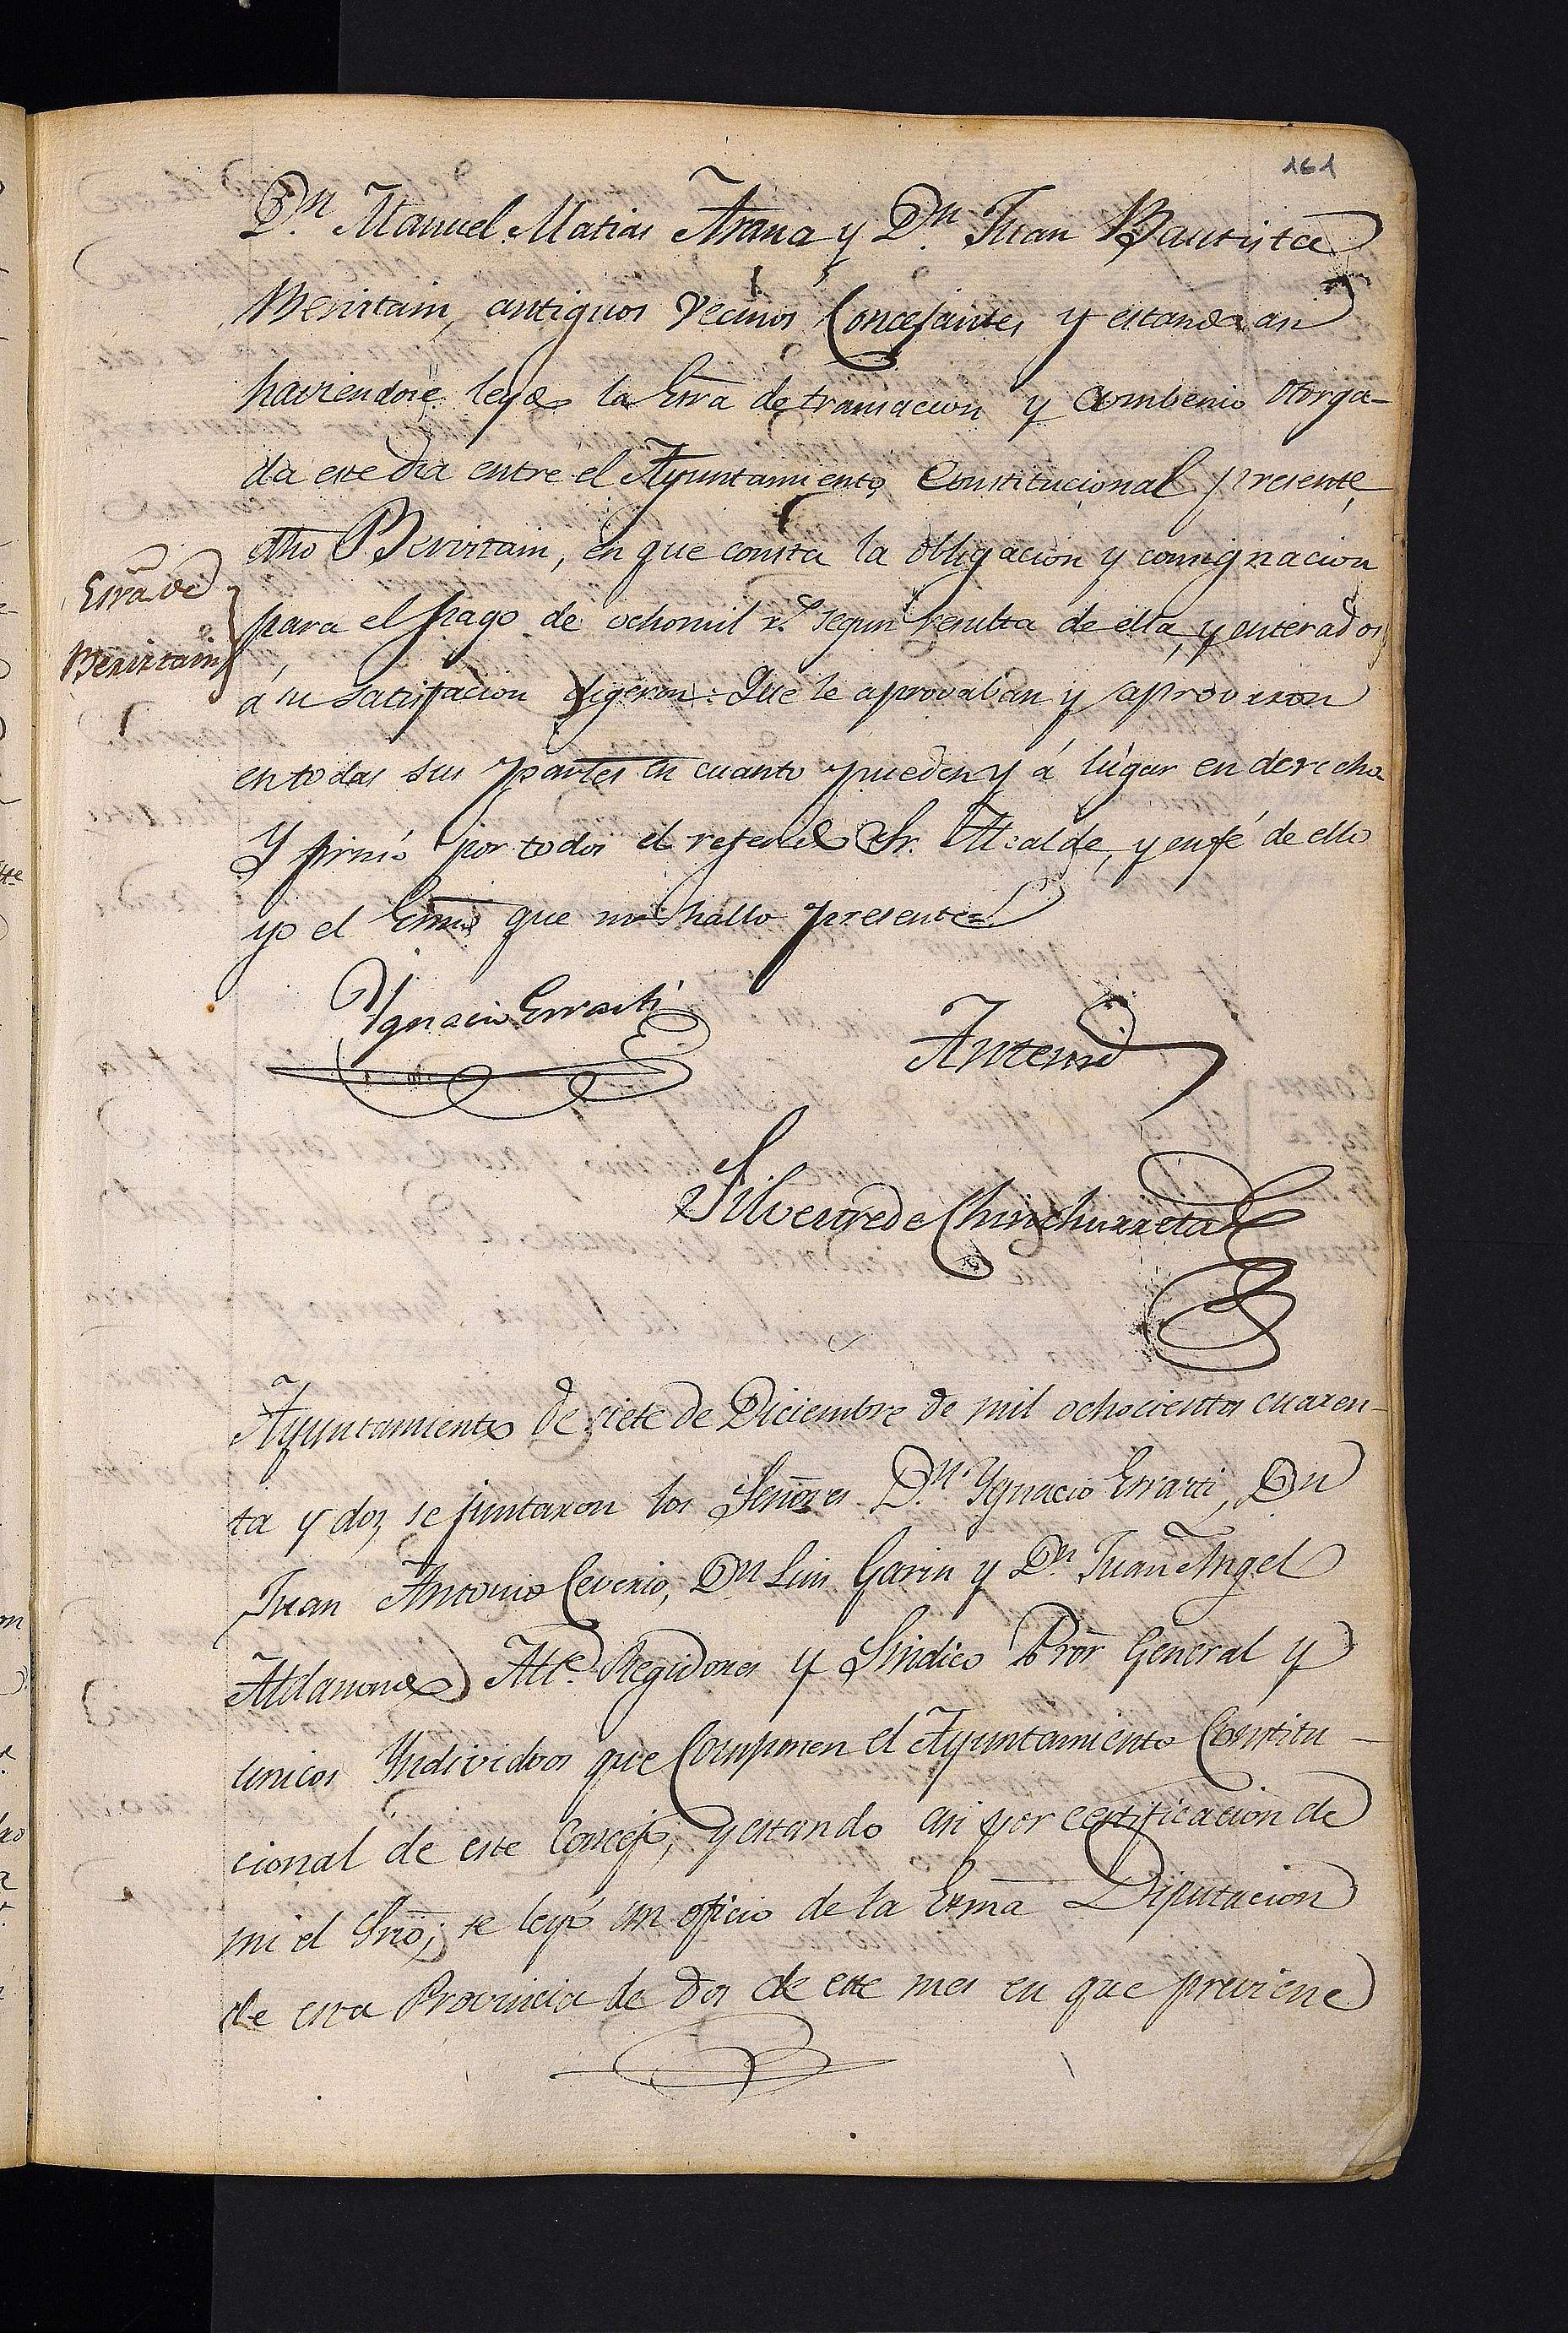 161
Dn. Manuel Matias Arana y Dn. Juan Bautista
Beristain, antiguos Vecinos Concejantes y estando asi
haviendose leydo la Esra de transacion y Combenio otorga-
da este dia entre el Ayuntamiento Constitucional presente,
dho Beristain, en que consta la obligacion y consignacion
Esra de
Beristain
para el pago de ochomil rs segun resulta de ella, y enterados
á su satisfacion digeron: Que le aprovaban y aprovaron
en todas sus partes en cuanto pueden y á lúgar en derecho
Y firmó por todos el referido Sr. Alcalde, y en fé de ello
yo el Esno que me hallo presente=
Ygnacio Errasti
Antemi
Silvestre de Chinchurreta
Ayuntamiento de siete de Diciembre de mil ochocientos cuaren-
ta y dos, se juntaron los Señores Dn. Ygnacio Errasti, Dn
Juan Antonio Ceverio, Dn Luis Garin y Dn. Juan Angel
Aldanondo Alle. Regidores y Sindico Pror General y
unicos Yndividuos que Componen el Ayuntamiento Constitu-
cional de este Concejo, y estando asi por certificacion de
mi el Srio; se leyó un oficio de la Exma Diputacion
de esta Provincia de dos de este mes en que previene